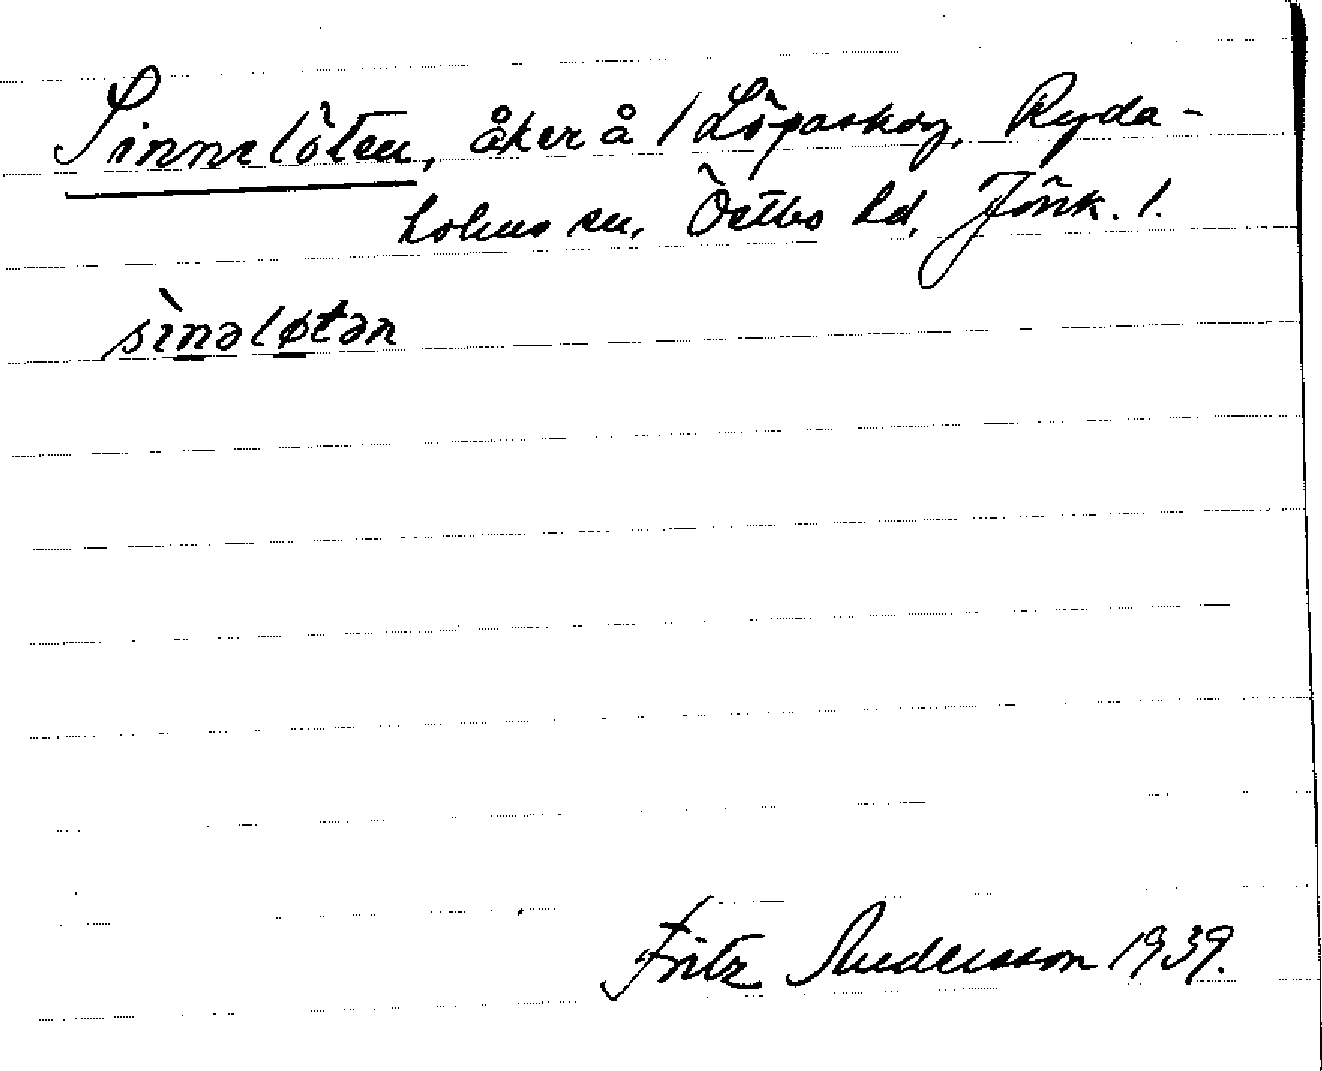 Sinnelöten, åker å / Löpaskog, Ryda-
holms sn, Östbo hd, Jönk. l.
sìnəløtən
Fritz Andersson 1939.